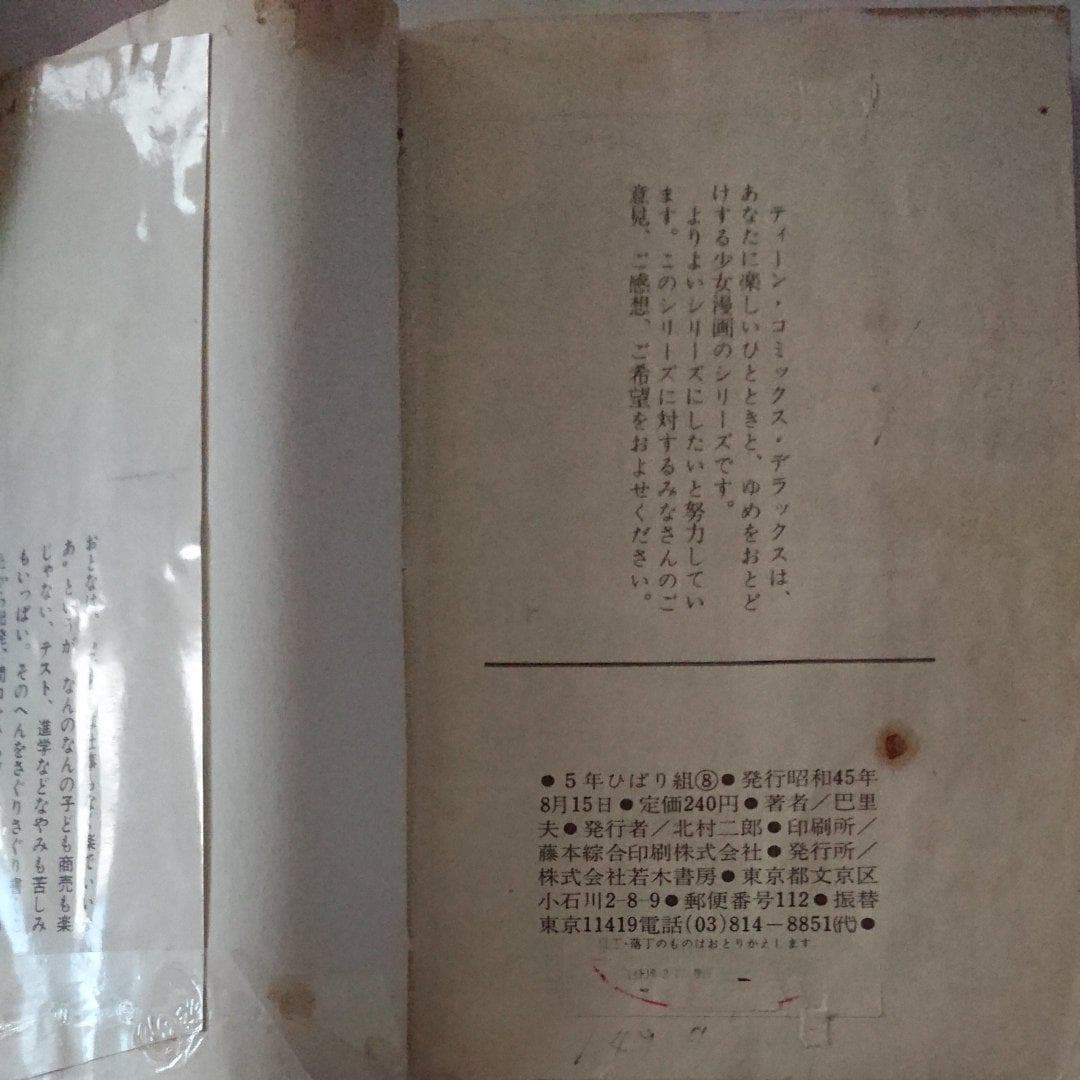 ティーン・コミックス・デラックスは、
あなたに楽しいひとときと、ゆめをおとど
けする少女漫画のシリーズです。
よりよいシリーズにしたいと努力してい
ます。このシリーズに対するみなさんのご
意見、ご感想、ご希望をおよせください。
●5年ひばり組⑧●発行昭和45年
8月15日●定価240円●著者／巴里
夫●発行者／北村二郎●印刷所／
藤本綜合印刷株式会社●発行所／
株式会社若木書房●東京都文京区
小石川2-8-9●郵便番号112●振替
東京11419電話(03)814-8851㈹●
・落丁のものはおとりかえします
おとなは、
あ〟というが、なんのなんの子ども商売も楽
じゃない、テスト、進学などなやみも苦しみ
もいっぱい。そのへんをさぐりさぐり書